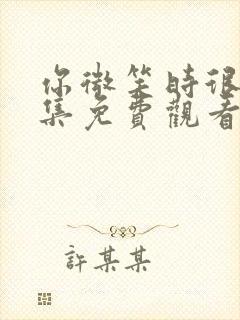 你微笑時很
集免費觀看
許某某